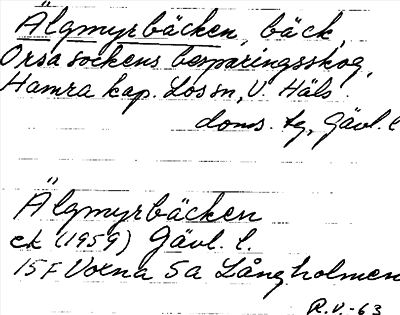 Älgmyrbäcken, bäck,
Orsa sockens besparingsskog,
Hamra kap. Lossn, V. Häls.
doms. tg, Gävl. l
Älgmyrbäcken
ek (1959) Gävl. l.
15F Voxna 5a Långholmen
R.V.-63